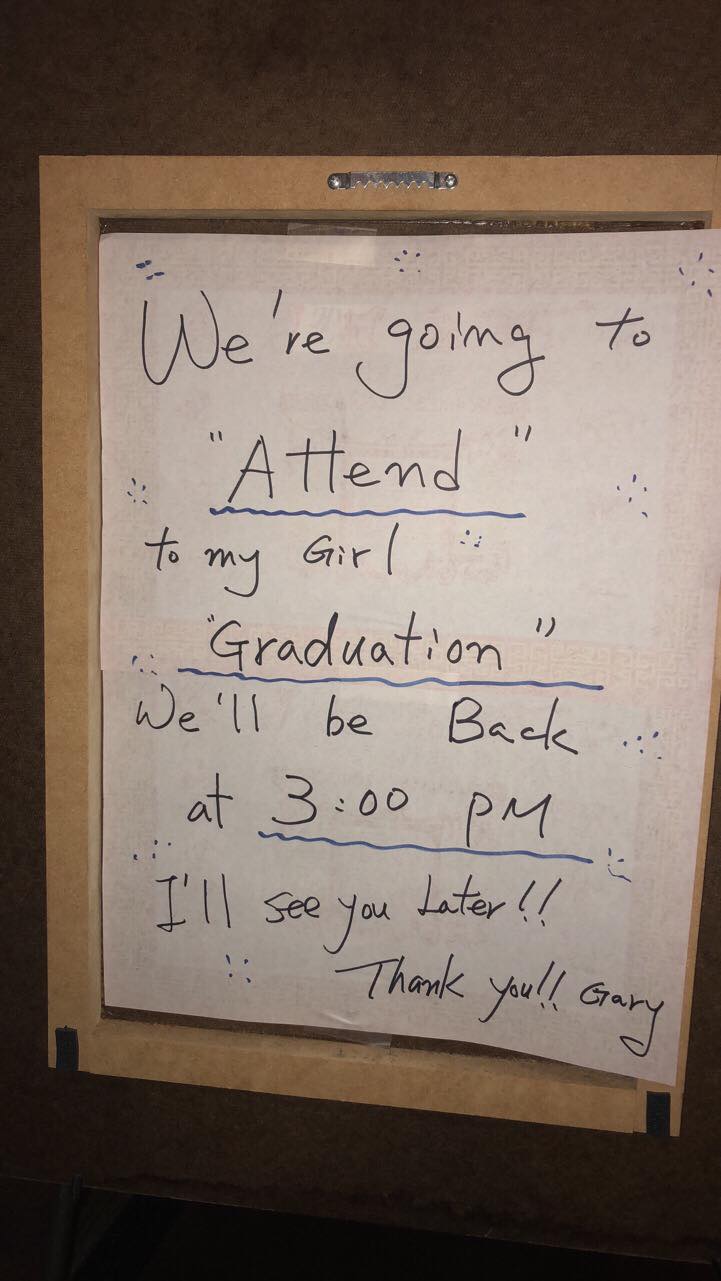 We're going to
"Attend"
to my Girl
"Graduation"
We'll be Back
at 3:00 PM
I'll see you Later!!
Thank you!! Gary